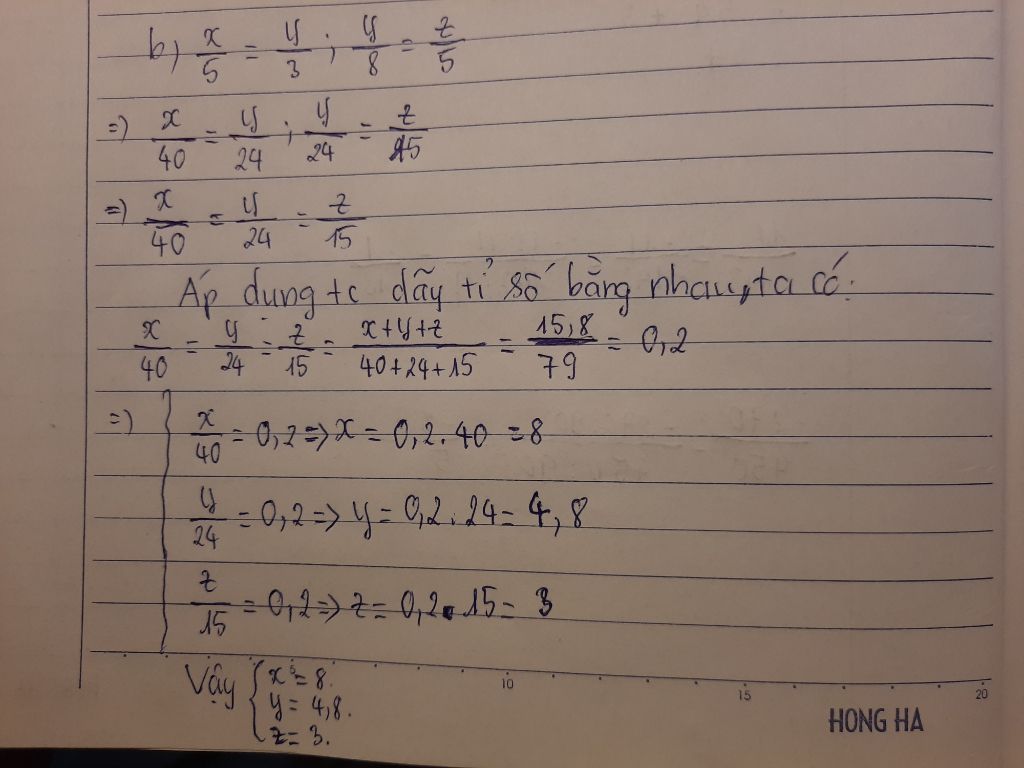 b) x/5 = y/3 ; y/8 = z/5
=) x/40 = y/24 ; y/24 = z/15
=) x/40 = y/24 = z/15
Áp dụng tc dãy tỉ số bằng nhau, ta có:
x/40 = y/24 = z/15 = x+y+z/40+24+15 = 15,8/79 = 0,2
=) { x/40 = 0,2 => x = 0,2 . 40 = 8
y/24 = 0,2 => y = 0,2 . 24 = 4,8
z/15 = 0,2 => z = 0,2 . 15 = 3
Vậy { x = 8.
y = 4,8.
z = 3.
10 15 20
HONG HA